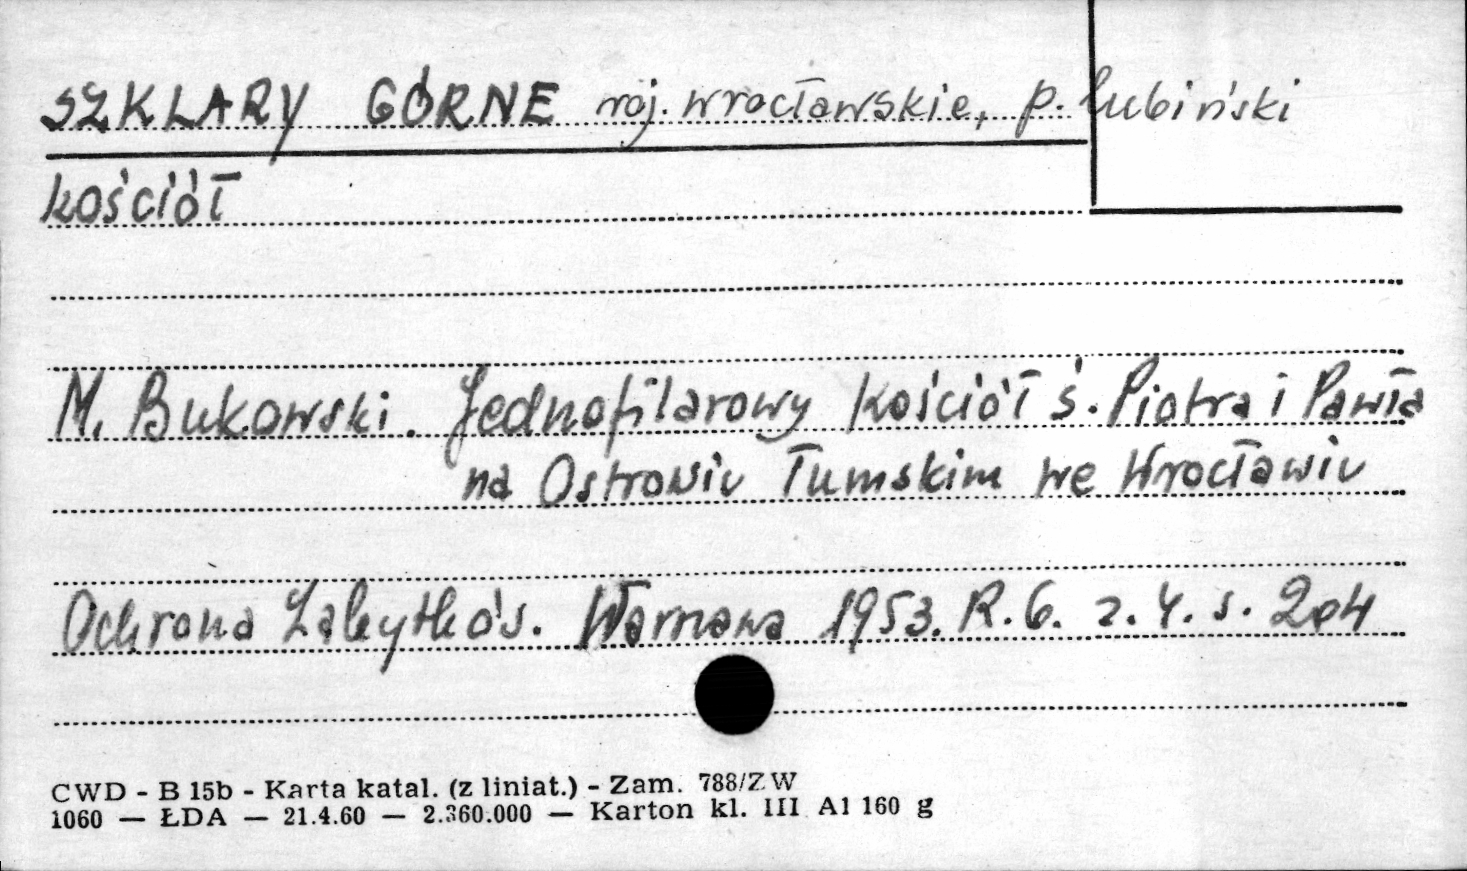 SZKLARY GÓRNE woj. wrocławskie, p. lubiński
kościół
M. Bukowski. Jednofilarowy kościół ś. Piotra i Pawła
na Ostrowiu Tumskim we Wrocławiu
Ochrona Zabytków. Warszawa 1953. R. 6. z. 4. s. 204
CWD - B 15b - Karta katal. (z liniat.) - Zam. 788/ZW
1060 — ŁDA — 21.4.60 — 2.360.000 — Karton kl. III A1 160 g